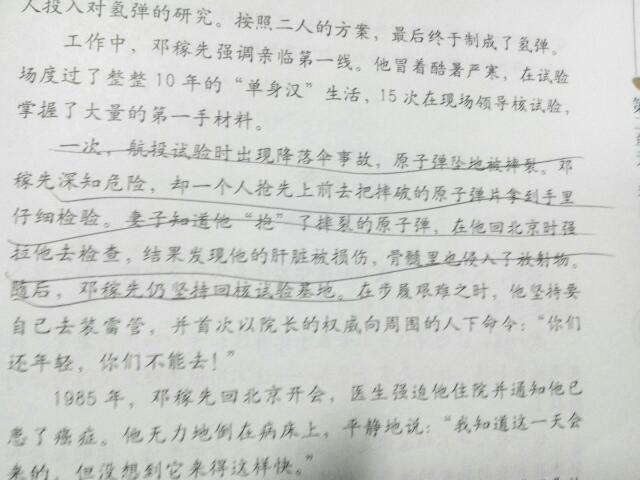 人投入对氢弹的研究。按照二人的方案，最后终于制成了氢弹。
工作中，邓稼先强调亲临第一线。他冒着酷暑严寒，在试验
场度过了整整 10 年的“单身汉”生活，15 次在现场领导核试验，
掌握了大量的第一手材料。
一次，航投试验时出现降落伞事故，原子弹坠地被摔裂。邓
稼先深知危险，却一个人抢先上前去把摔破的原子弹片拿到手里
仔细检验。妻子知道他“抱”了摔裂的原子弹，在他回北京时强
拉他去检查，结果发现他的肝脏被损伤，骨髓里也侵入了放射物。
随后，邓稼先仍坚持回核试验基地。在步履艰难之时，他坚持要
自己去装雷管，并首次以院长的权威向周围的人下命令：“你们
还年轻，你们不能去！”
1985 年，邓稼先回北京开会，医生强迫他住院并通知他已
患了癌症。他无力地倒在病床上，平静地说：“我知道这一天会
来的，但没想到它来得这样快。”